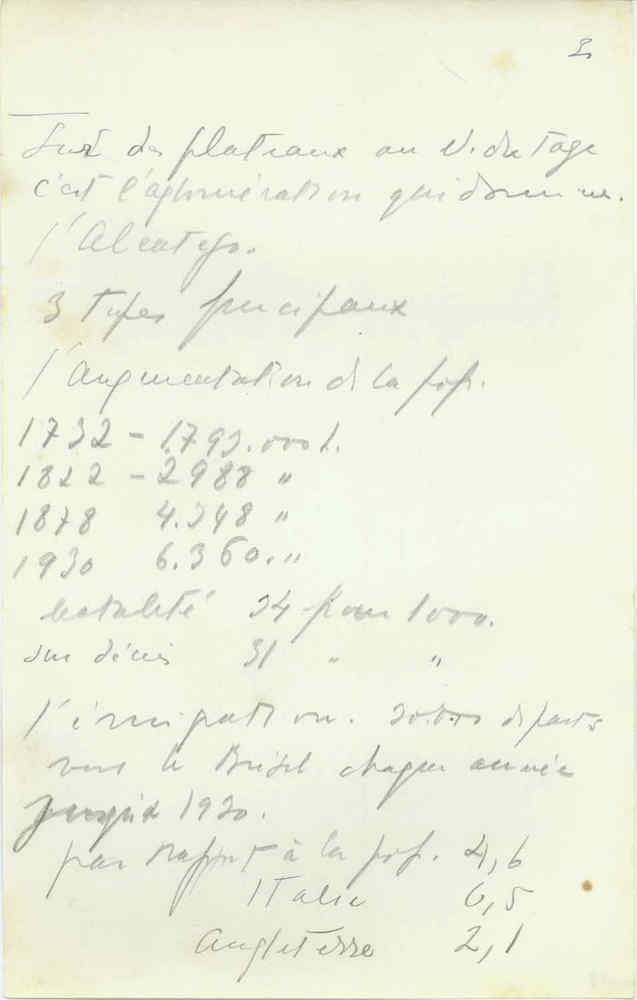 3
Sur des plateaux au N. du Tage
c'est l'agglomération qui domine.
l'Alentejo.
3 types principaux
l'augmentation de la pop.
1732 - 1.793.000 h.
1822 - 2988 "
1878 4.348 "
1930 6.360. "
natalité 34 pour 1000.
sur décès 31 " "
l'émigration. 30.000 départs
vers le Brésil chaque année
jusqu'à 1930.
par rapport à la pop. 4,6
Italie 6,5
Angleterre 2,1